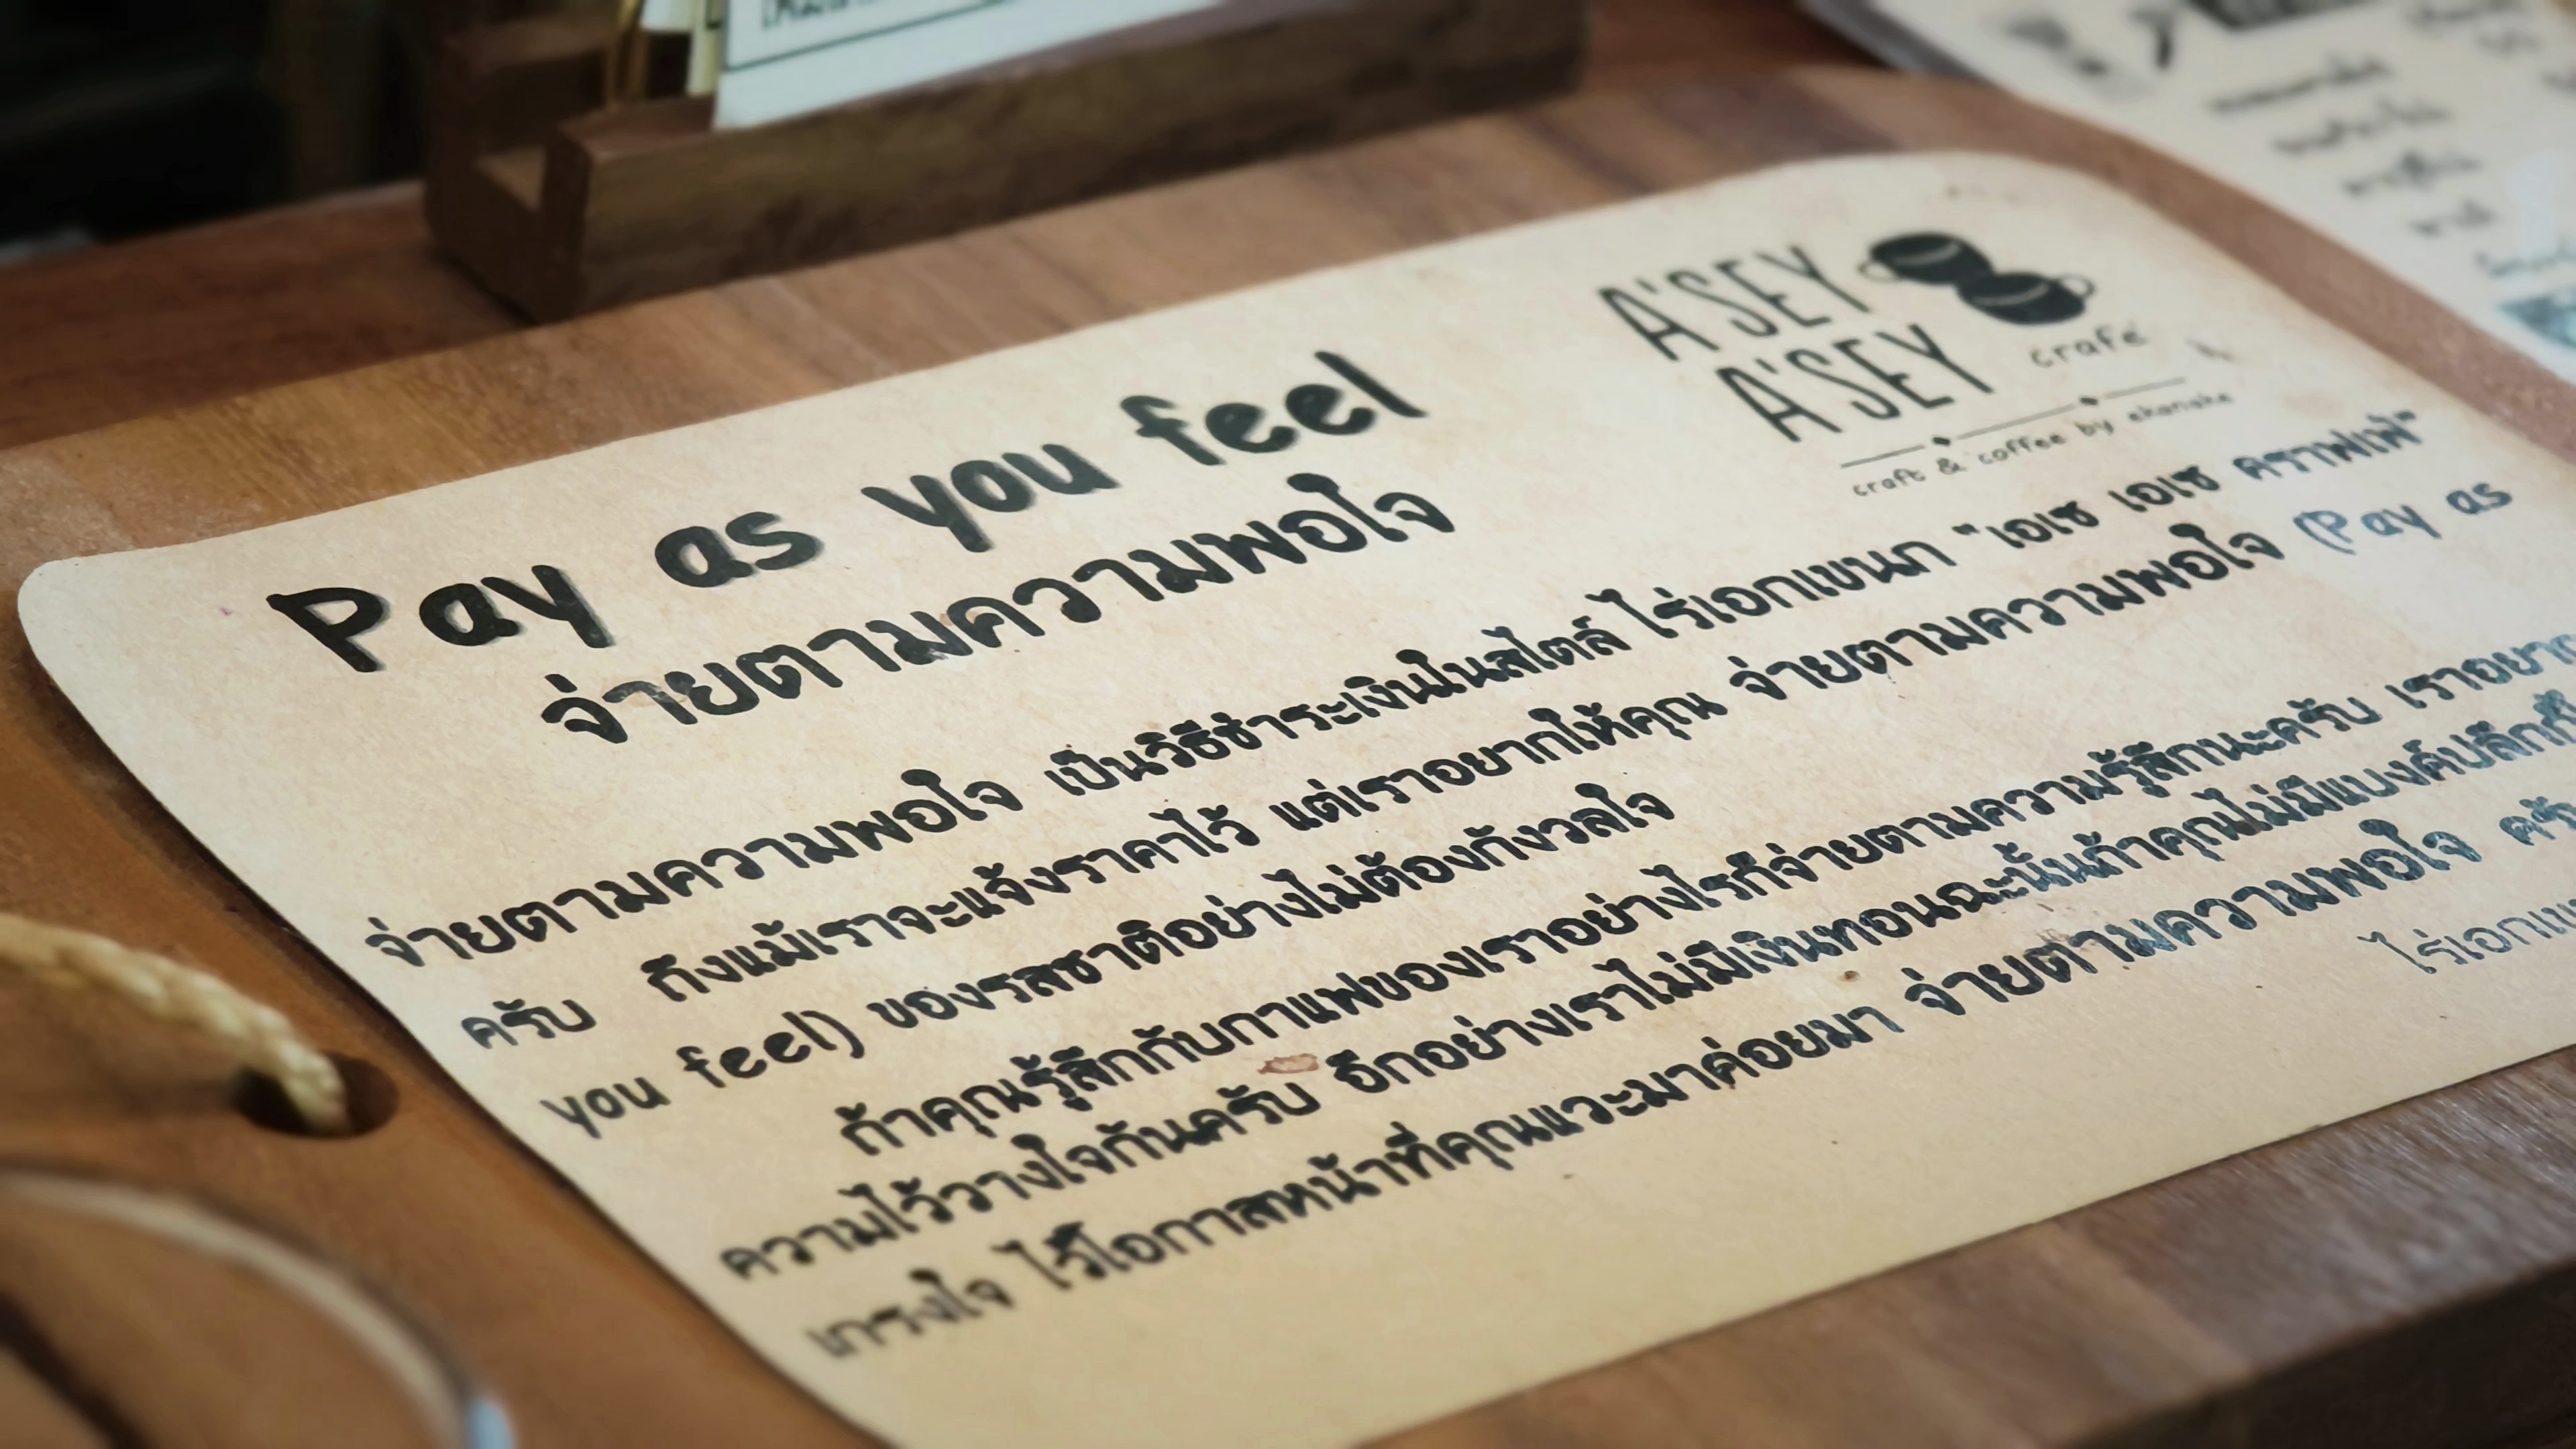 A'SEY
A'SEY
crafe
craft & coffee by ekanake
Pay as you feel
จ่ายตามความพอใจ
จ่ายตามความพอใจ เป็นวิธีชำระเงินในสไตล์ ไร่เอกเขนก "เอเซ เอเซ คราฟเฟ่"
ครับ ถึงแม้เราจะแจ้งราคาไว้ แต่เราอยากให้คุณ จ่ายตามความพอใจ (Pay as
you feel) ของรสชาติอย่างไม่ต้องกังวลใจ
ถ้าคุณรู้สึกกับกาแฟของเราอย่างไรก็จ่ายตามความรู้สึกนะครับ
ความไว้วางใจกันครับ อีกอย่างเราไม่มีเงินทอนฉะนั้นถ้าคุณไม่มีแบงค์ปลีก
เกรงใจ ไว้โอกาสหน้าที่คุณแวะมาค่อยมา จ่ายตามความพอใจ